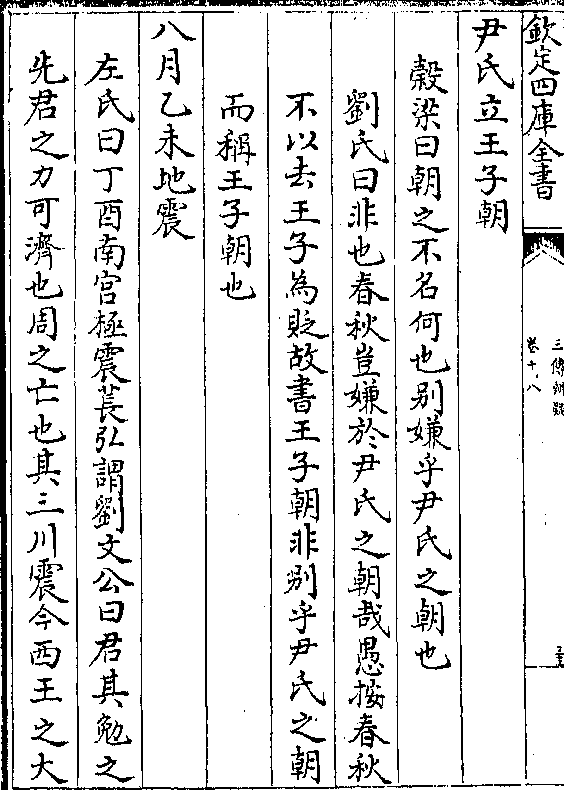 欽定四庫全書
三傳辨疑
卷十八
尹氏立王子朝
穀梁曰朝之不名何也别嫌乎尹氏之朝也
劉氏曰非也春秋豈嫌於尹氏之朝哉愚按春秋
不以去王子為貶故書王子朝非别乎尹氏之朝
而稱王子朝也
八月乙未地震
左氏曰丁酉南宫極震萇弘謂劉文公曰君其勉之
先君之力可濟也周之亡也其三川震今西王之大